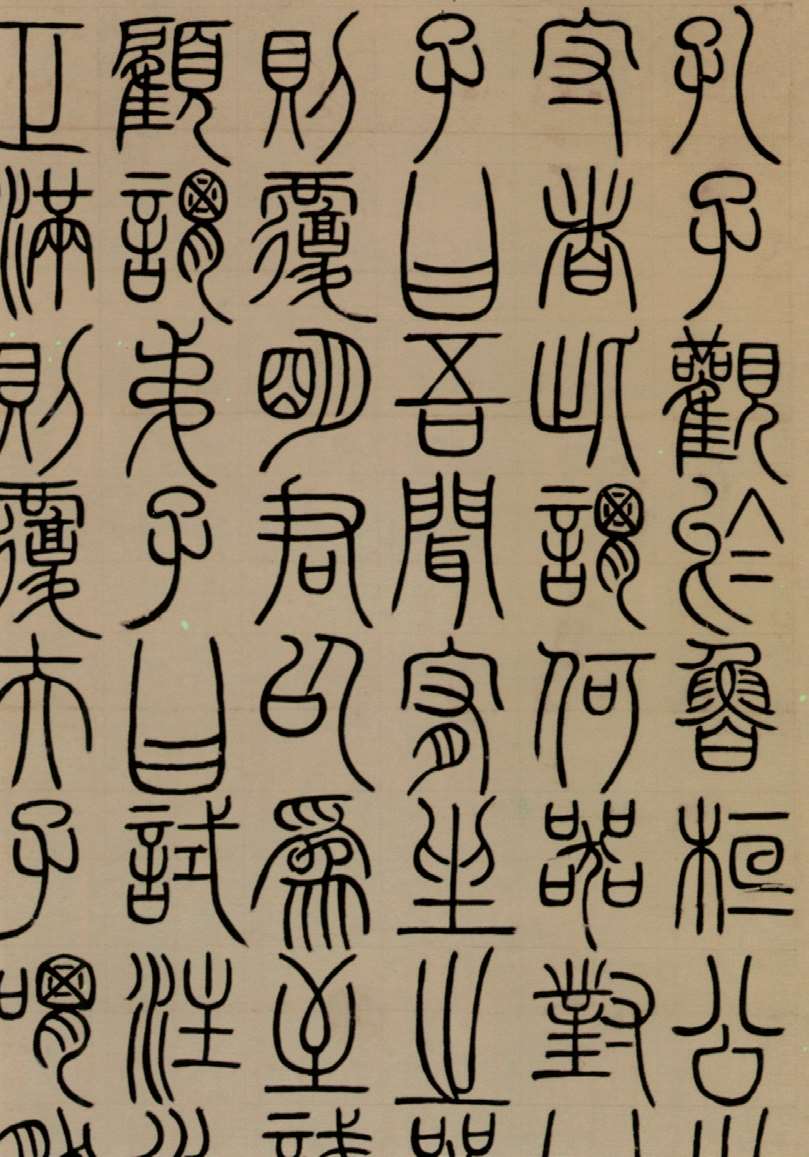 孔子觀於魯桓公
守者此謂何器對
子曰吾聞宥坐之
則覆明君以為至
顧謂弟子曰試注
正滿則覆夫子喟